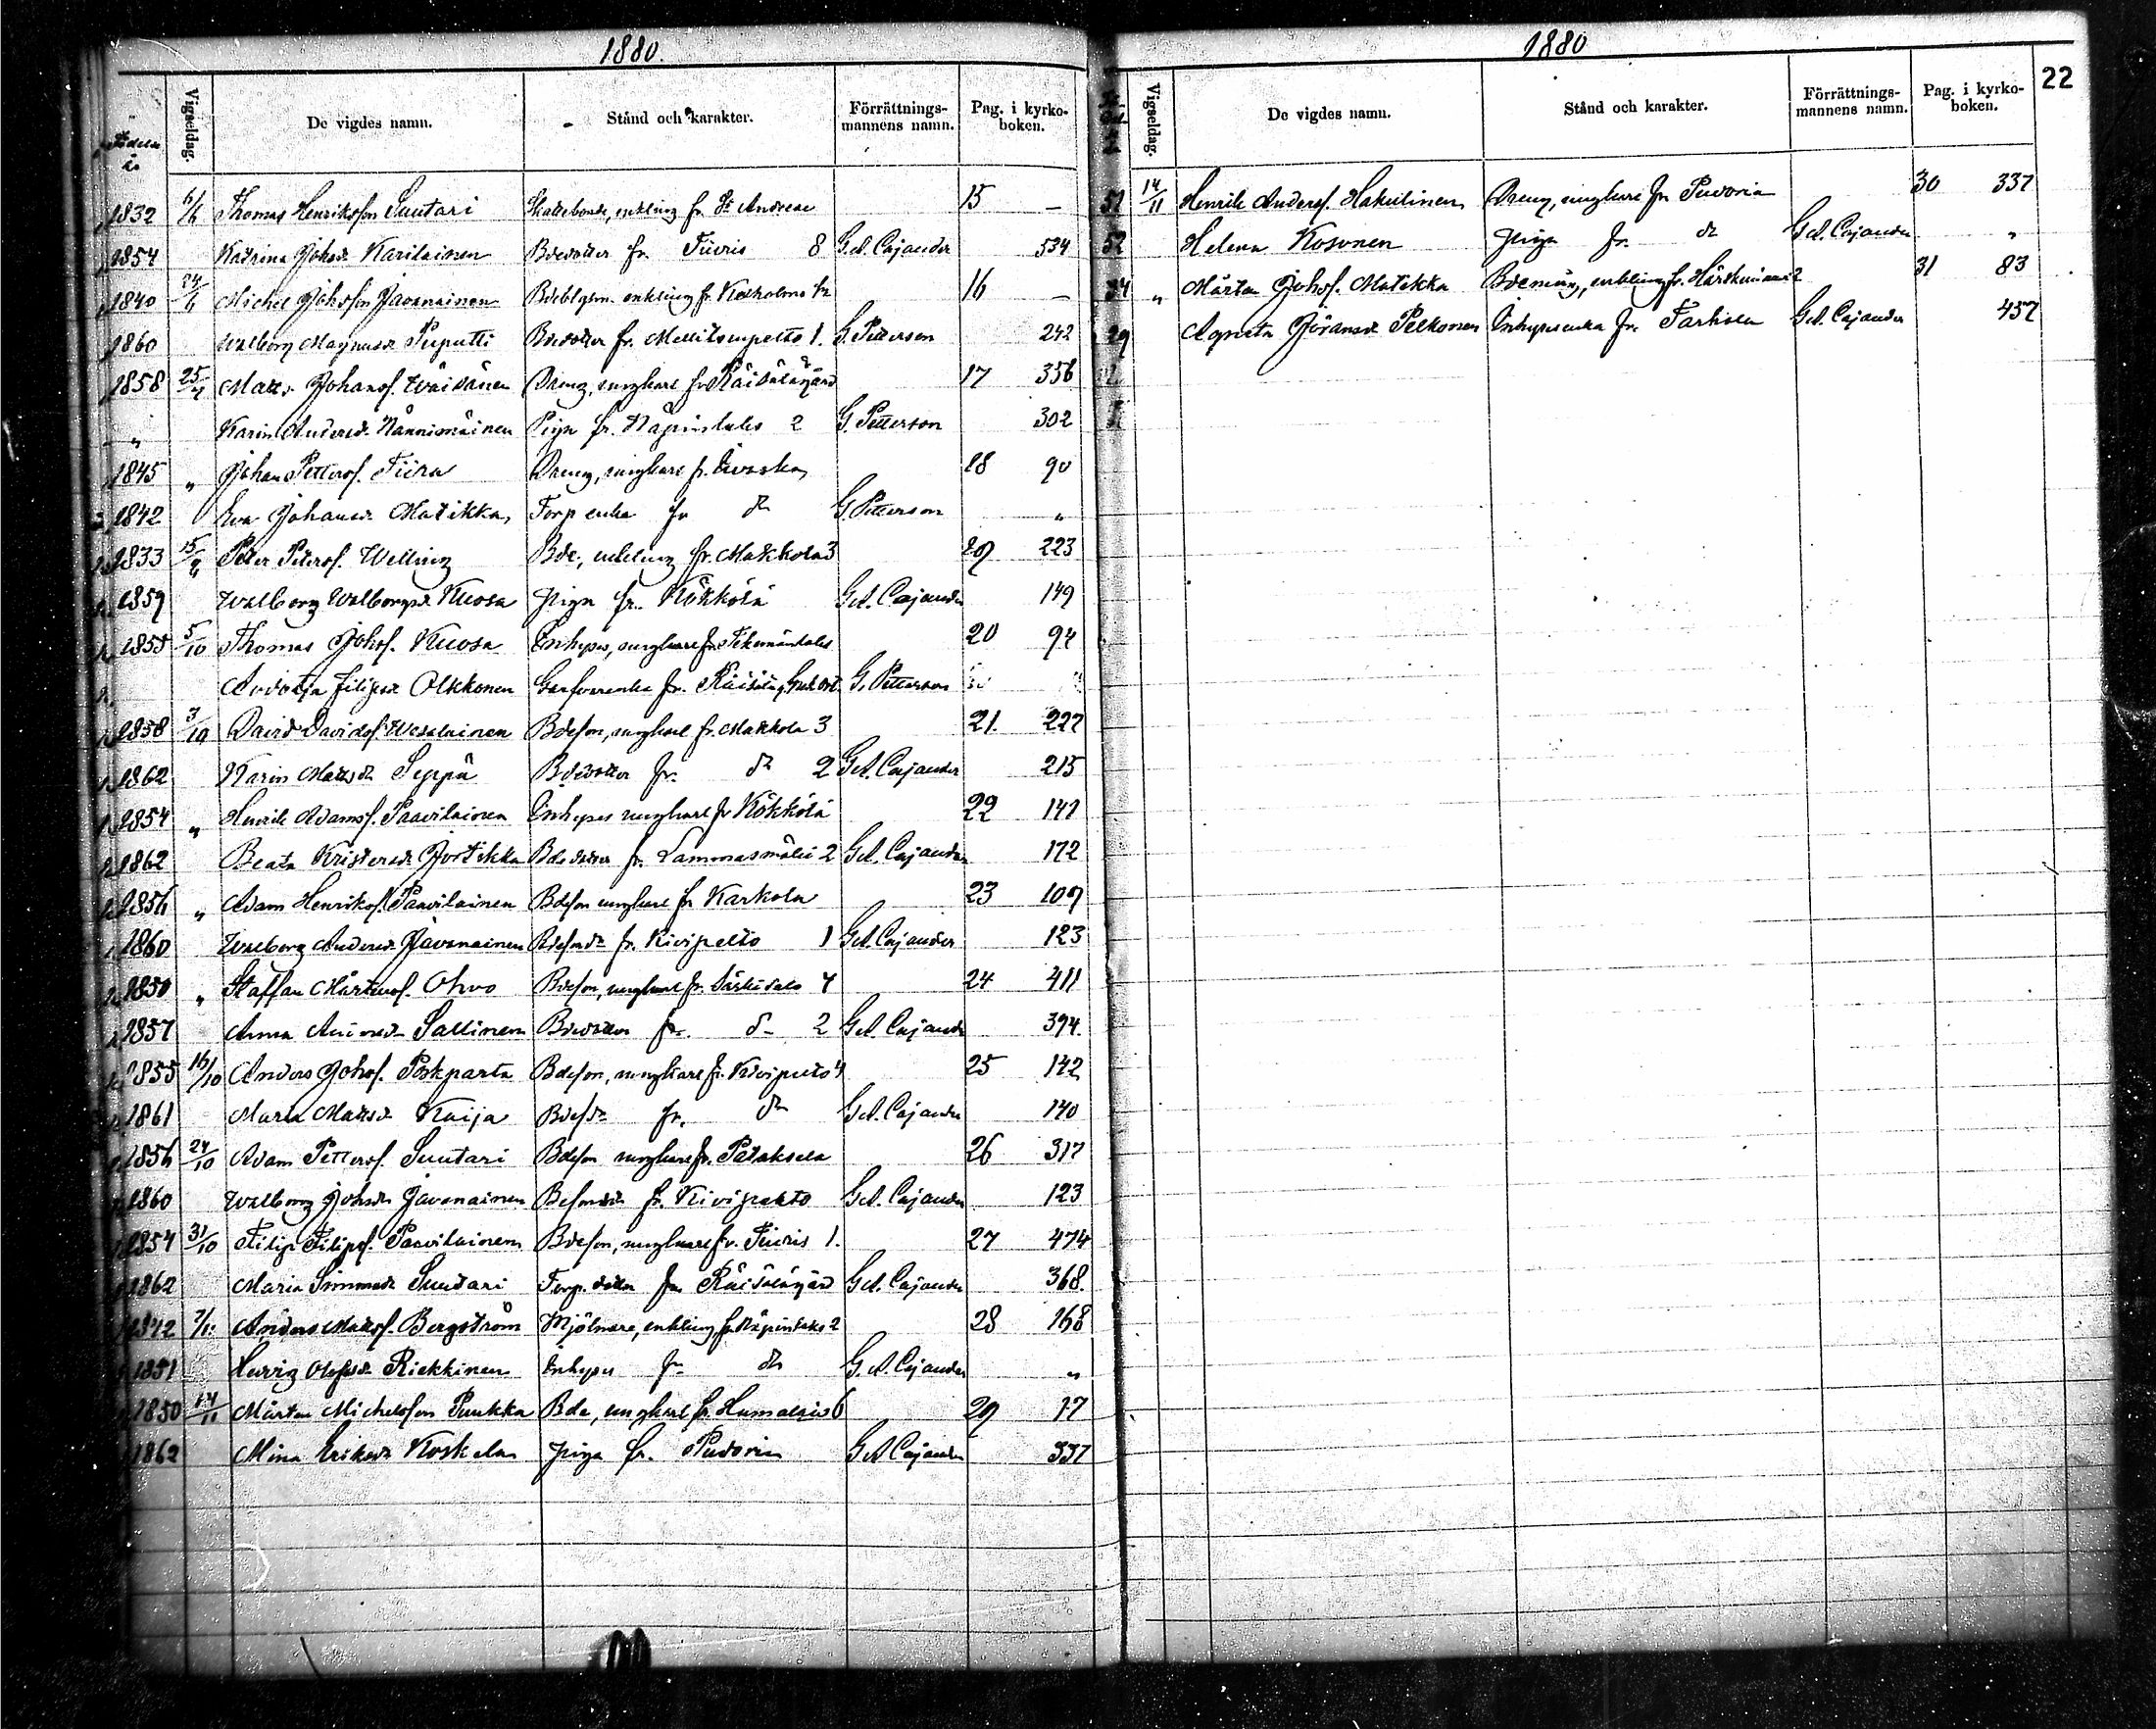 1880.
Vigseldag. De vigdes namn. Stånd och karakter. Förrättnings-mannens namn. Pag. i kyrko-boken.
1832 6/6 Thomas Henriksson Suutari Skattebonde, enkling fr. St Andreae 15 —
1854 Katrina Johsdr Karilainen Bdedotter fr. Tiuris 8 G.A. Cajander 534
1840 24/6 Michel Johsson Javanainen enkling fr. Kexholms 16 —
1860 Walborg Magnusdr Puputti Bdedotter fr. Mellitsunpelto 1. G. Petterson 242
1858 25/7 Matts Johansf. Wäisänen Dreng, ungkarl fr Räisälägård 17 356
" Karin Andersdr Nännimäinen Piga fr. Näpinlaks 2 G. Petterson 302
1845 " Johan Pettersf. Tiira Dreng, ungkarl fr. Ivaska 18 90
1842 Eva Johansdr Matikka Torp enka fr do G. Petterson "
1833 Peter Petersf. Welling Bde, enkling fr. Makkola 3 19 223
1859 Walborg Walborgsdr Kuosa piga fr. Kökkölä G.A. Cajander 149
1855 5/10 Thomas Johsf. Kuosa Inhyses, ungkarl fr. 20 94
Avdotja Filipsdr Olkkonen Garfvarenka fr. G. Petterson
1858 3/10 David Davidsf. Wesalainen Bdeson, ungkarl fr. Makkola 3 21. 227
1862 Karin Mattsdr Seppä Bdedotter fr. do 2 G.A. Cajander 215
1854 " Henrik Adamsf. Paavilainen Inhyses ungkarl fr Kökkölä 22 141
1862 Beata Kristersdr Jortikka Bdedotter fr. Lammasmäki 2 G.A. Cajander 172
1856 " Adam Henriksf. Paavilainen Bdeson ungkarl fr Karkola 23 109
1860 Walborg Andersdr Javanainen fr. Kivipelto 1 G.A. Cajander 123
1850 " Staffan Mårtensf. Ohvo Bdeson, ungkarl fr. Särkisalo 4 24 411
1857 Anna Sallinen Bdedotter fr. do 2 G.A. Cajander 394.
1855 16/10 Anders Johsf. Poskparta Bdeson, ungkarl fr. 4 25 142
1861 Maria Mattsdr Kaija fr. do G.A. Cajander 140
1856 24/10 Adam Pettersf. Suutari Bdeson ungkarl fr. 26 317
1860 Walborg Johsdr Javanainen fr. Kivipelto G.A. Cajander 123
1854 31/10 Filip Filipsf. Paavilainen Bdeson, ungkarl fr. Tiuris 1. 27 474
1862 Maria Simmsdr Suutari Torp. dotter fr. Räisälägård G.A. Cajander 368.
1842 Anders Mattsf. Bergström Mjölnare, enkling fr. Näpinlaks 2 28 168
1851 Hedvig Olofsdr Riekkinen Inhyses fr. do G.A. Cajander "
1850 14/11 Mårten Michelsson Puukka Bde, ungkarl fr. Humalais 6 29 17
1862 Mina Eriksdr Koskela piga fr. Pudoria G.A. Cajander 337
1880
22
Vigseldag. De vigdes namn. Stånd och karakter. Förrättnings-mannens namn. Pag. i kyrko-boken.
51 14/11 Henrik Andersf. Hakulinen Dreng, ungkarl fr. Pudoria 30 337
52 Helena Kosonen piga fr. do G.A. Cajander "
34 " Mårten Johsf. Matikka enkling fr. 2 31 83
29 Agneta Göransdr Pelkonen Inhysesenka fr. Tarhola G.A. Cajander 457